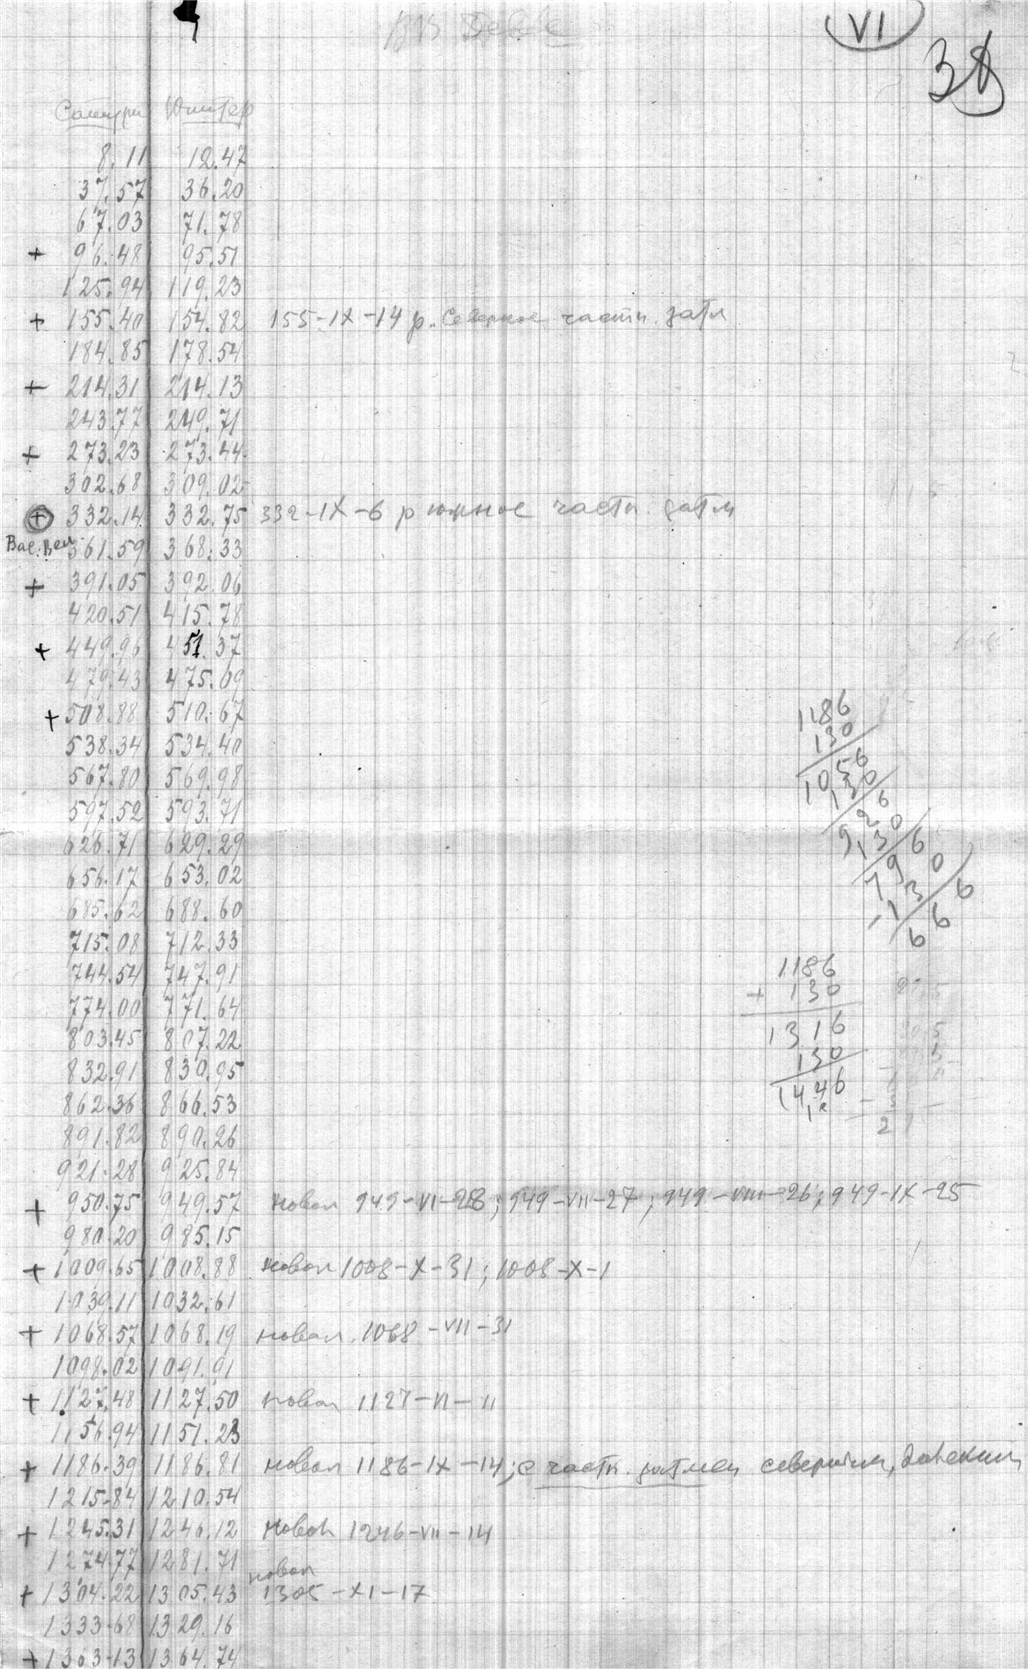 въ Деве
VI
38
Сатурн Юпитер
8.11 12.47
37.57 36.20
67.03 71.78
+ 96.48 95.51
125.94 119.23
+ 155.40 154.82 155-IX-14 р. северное частн. затм
184.85 178.54
+ 214.31 214.13
243.77 249.71
+ 273.23 273.44
302.68 309.02
+ 332.14 332.75 332-IX-6 р южное частн. затм
Вас. Вел 361.59 368.33
+ 391.05 392.06
420.51 415.78
+ 449.96 451.37
479.43 475.09
+ 508.88 510.67
538.34 534.40
567.80 569.98
597.52 593.71
626.71 629.29
656.17 653.02
685.62 688.60
715.08 712.33
744.54 747.91
774.00 771.64
803.45 807.22
832.91 830.95
862.36 866.53
891.82 890.26
921.28 925.84
+ 950.75 949.57 новол 949-VI-28; 949-VII-27; 949-VIII-26; 949-IX-25
980.20 985.15
+ 1009.65 1008.88 новол 1008-X-31; 1008-X-1
1039.11 1032.61
+ 1068.57 1068.19 новол. 1068-VII-31
1098.02 1091.91
+ 1127.48 1127.50 новол 1127-VI-11
1156.94 1151.23
+ 1186.39 1186.81 новол 1186-IX-14; с частн. затмен северным,
1215.84 1210.54
+ 1245.31 1246.12 новол 1246-VII-14
1274.77 1281.71
новол
+ 1304.22 1305.43 1305-XI-17
1333.68 1329.16
+ 1363.13 1364.74
1186
130
1056
130
926
130
796
-130
666
1186
+ 130
1316
130
1446